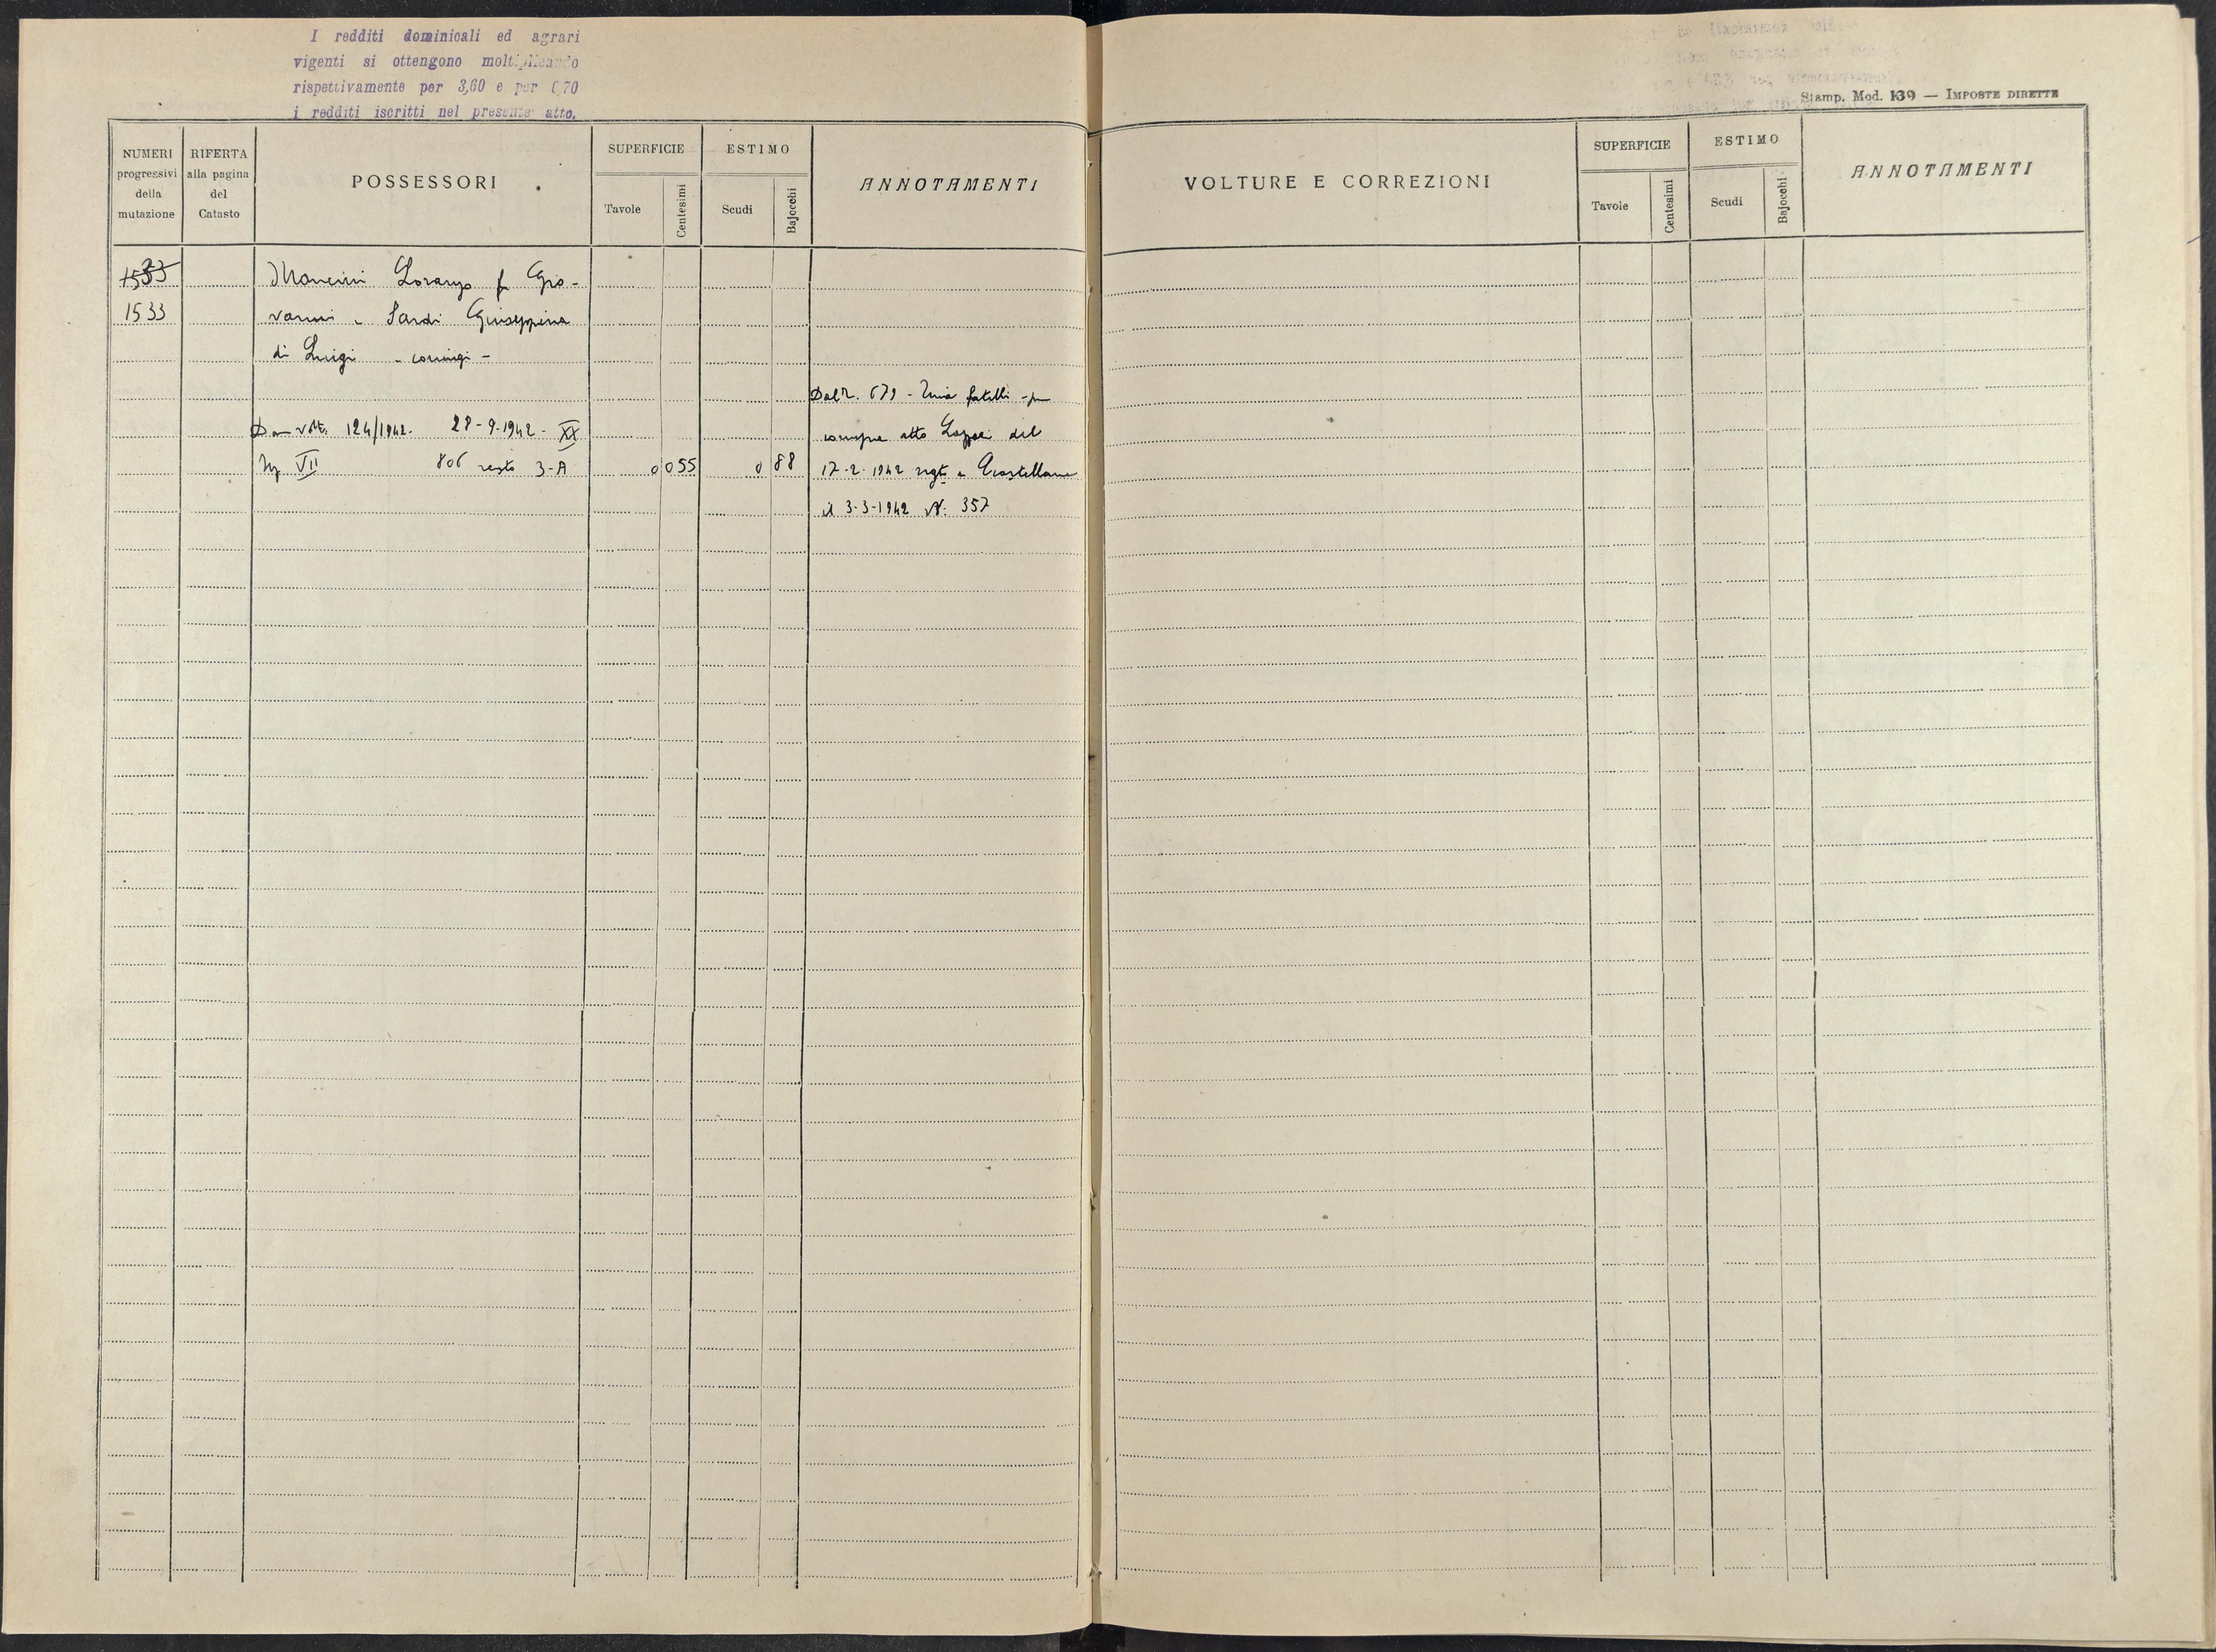 I redditi dominicali ed agrari
vigenti si ottengono moltiplicando
rispettivamente per 3,60 e per 0,70
i redditi iscritti nel presente atto.
Stamp. Mod. 139 — IMPOSTE DIRETTE
NUMERI progressivi della mutazione
RIFERTA alla pagina del Catasto
POSSESSORI
SUPERFICIE
Tavole
Centesimi
ESTIMO
Scudi
Bajocchi
ANNOTAMENTI
VOLTURE E CORREZIONI
SUPERFICIE
Tavole
Centesimi
ESTIMO
Scudi
Bajocchi
ANNOTAMENTI
1533 Mancini Lorenzo fu Gio-
1533 vanni - Sardi Giuseppina
di Luigi - coniugi -
Dal N. 679 - fratelli - per
Dom volt. 124/1942. 28-9-1942 - XX compra atto del
VII 806 resto 3-A 0 055 0 88 17-2-1942 regto a Castellana
il 3-3-1942 N. 357